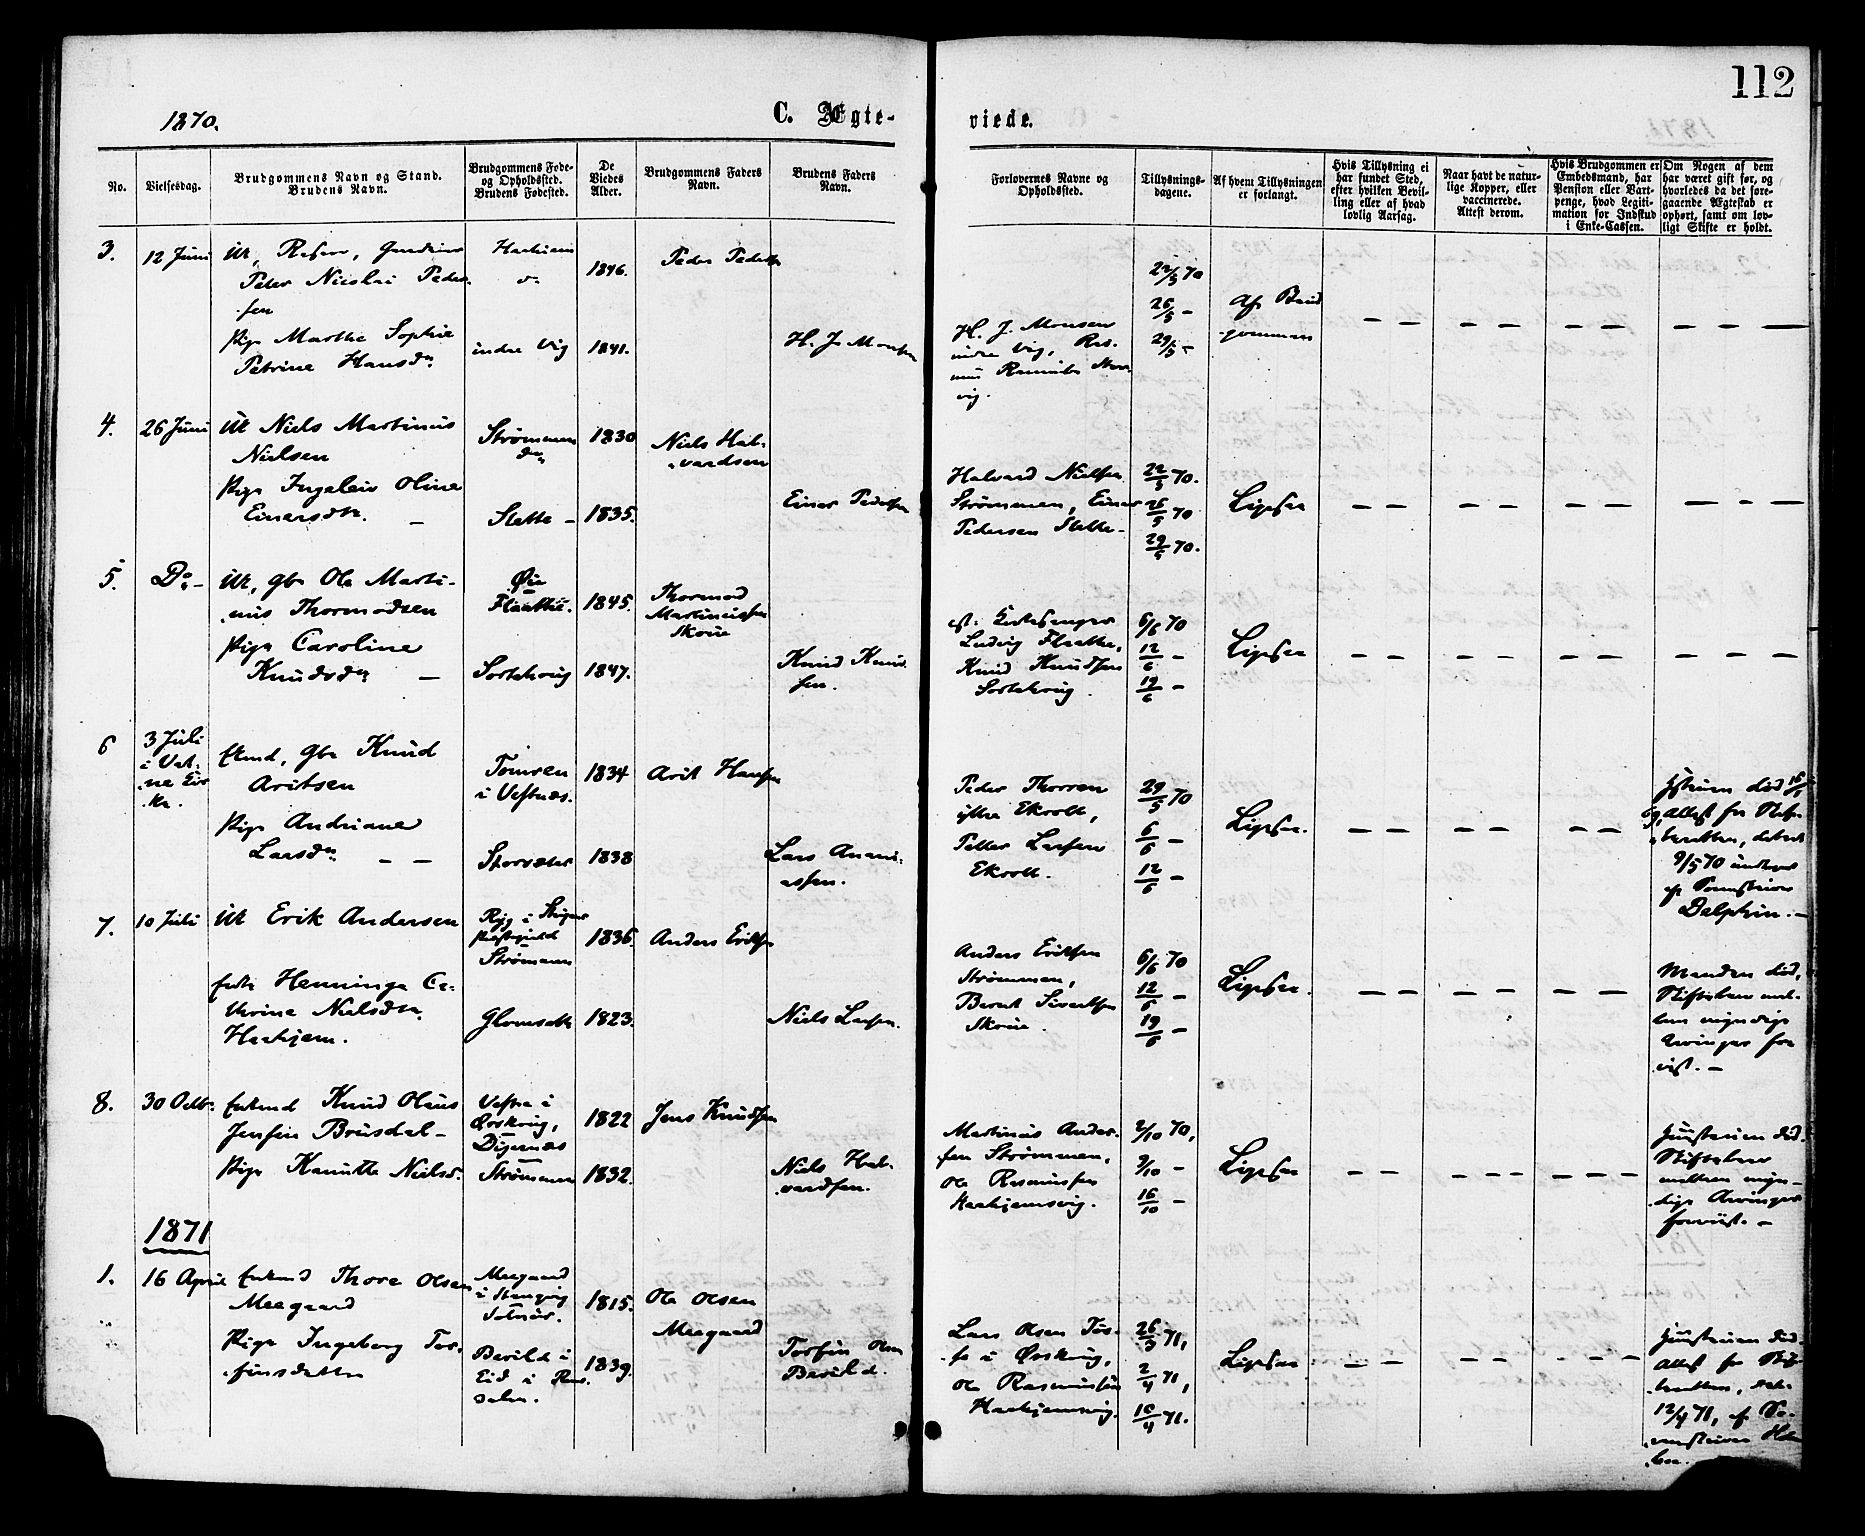 112
1870.
C. Ægte-
viede.
No.
Vielsesdag.
Brudgommens Navn og Stand.
Brudens Navn.
Brudgommens Føde-
og Opholdssted.
Brudens Fødested.
De
Viedes
Alder.
Brudgommens Faders
Navn.
Brudens Faders
Navn.
Forlovernes Navne og
Opholdssted.
Tillysnings-
dagene.
Af hvem Tillysningen
er forlangt.
Hvis Tillysning ei
har fundet Sted,
efter hvilken Bevil-
ling eller af hvad
lovlig Aarsag.
Naar havt de natur-
lige Kopper, eller
vaccinerede.
Attest derom.
Hvis Brudgommen er
Embedsmand, har
Pension eller Vart-
penge, hvad Legiti-
mation for Indskud
i Enke-Cassen.
Om Nogen af dem
har været gift før, og
hvorledes da det fore-
gaaende Ægteskab er
ophørt, samt om lov-
ligt Skifte er holdt.
3.
12 Juni
Peter Nicolai Peder-
sen
Pige Marthe Sophie
Petrine Hansdr
indre Vig
1846.
1841.
Peder Peders
H. J. Monsen
H. J. Monsen
indre Vig, Ras-
vig.
22/5 70
26/5 –
29/5 –
Af Brud
gommen
4.
26 Juni
Uk Niels Martinus
Nielsen
Pige Ingeleiv Oline
Einersdtr. –
Strømmen
Slette –
1830
1835.
Niels Hal-
vardsen
Einer Pedersen
Halvard Nielsen
Strømmen, Einer
Pedersen Slette –
22/5 70.
26/5 70
29/5 70.
Ligesaa
5.
Do –
Uk, Gbr Ole Marti-
nus Thormodsen
Pige Caroline
Knudsdr –
Flaathe.
Sortehoug
1845.
1847.
Thormod
Martinussen
Skoue
Knud Knud-
sen.
Kirkesanger
Ludvig Flaathe,
Knud Knudsen
Sortehoug.
6/6 70
12/6 –
19/6 –
Ligesaa
6
3 Juli
i Vat-
ne Kir
ke.
Enkmd, Gbr Knud
Aritsen
Pige Andriane
Larsdr – –
Tomren
i Vestnæs.
1834
1838
Arit Hansen
Lars Anani-
assen.
Peder Thorsen
ytre Ekrolt,
Petter Larsen
Ekrolt.
29/5 70
6/6 –
12/6 –
Ligesaa.
Hustruen død
Attest fra Skifte-
retten, dateret
9/5 70 undersk
af Sorenskriver
Dalphin. –
7.
10 Juli
Uk Erik Andersen
Enke Henninga Ca-
thrine Nielsdtr.
Haahjem.
Strømmen
Glomsæth
1836.
1823.
Anders Eriksen
Niels Larsen.
Anders Eriksen
Strømmen,
Bernt Sivertsen
Skoue.
6/6 70
12/6 –
19/6 –
Ligesaa.
Manden død,
Skiftebrev mel-
lem myndige
Arvinger fore
vist. –
8.
30 Octbr.
Enkemd Knud Olaus
Jensen Brusdal –
Pige Hanutte Nielsd.
Vestre i
Ørskoug,
Digernæs
Strømmen
1822
1832.
Jens Knudsen
Niels Hal-
vardsen.
Martinus Ander-
sen Strømmen,
Ole Rasmussen
Haahjemsvig.
2/10 70,
9/10 –
16/10 –
Ligesaa
Hustruen død.
Skiftebrev
mellem myn-
dige Arvinger
forevist. –
1871
1.
16 April
Enkemd Thore Olsen
Meegaard
Pige Ingeborg Tor-
finsdatter
Meegaard
1815.
1839.
Ole Olsen
Meegaard
Torfin Olsen
Lars Olsen
i Ørskoug,
Ole Rasmussen
Haahjemsvig.
26/3 71,
2/4 71,
10/4 71.
Ligesaa
Hustruen død
Attest fra Skif-
teretten, dat.
12/4 71, af So-
renskriver